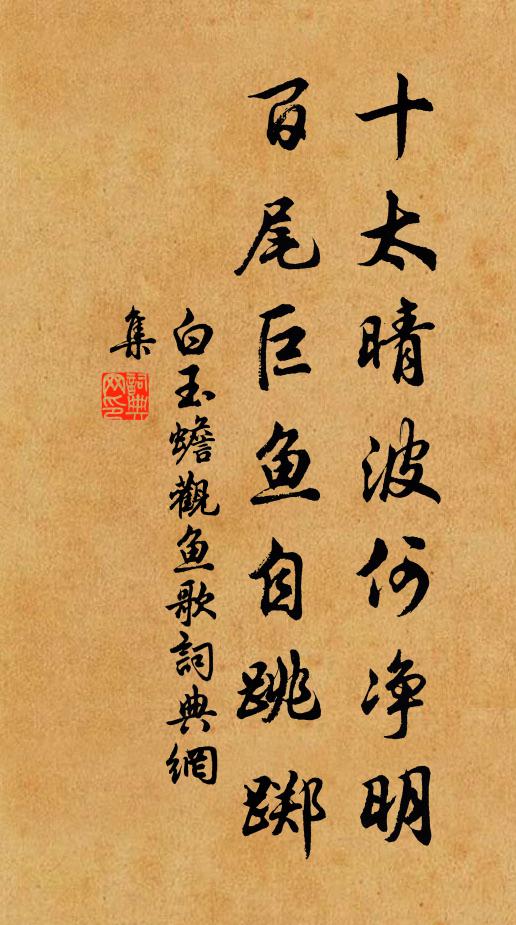 十太晴波何净明
百尾巨鱼自跳踯
白玉蟾觀鱼歌詞典網
集
詞典
网印